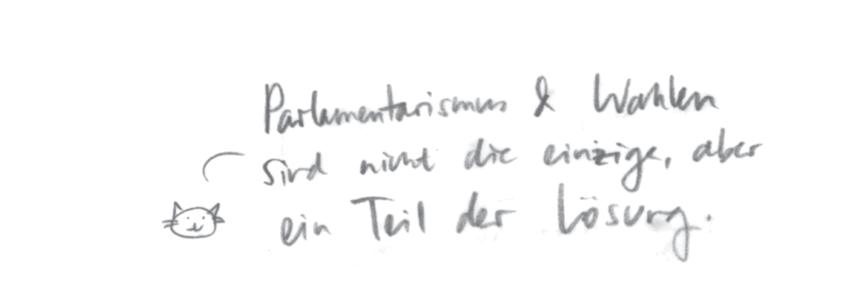 Parlamentarismus & Wahlen
sind nicht die einzige, aber
ein Teil der Lösung.